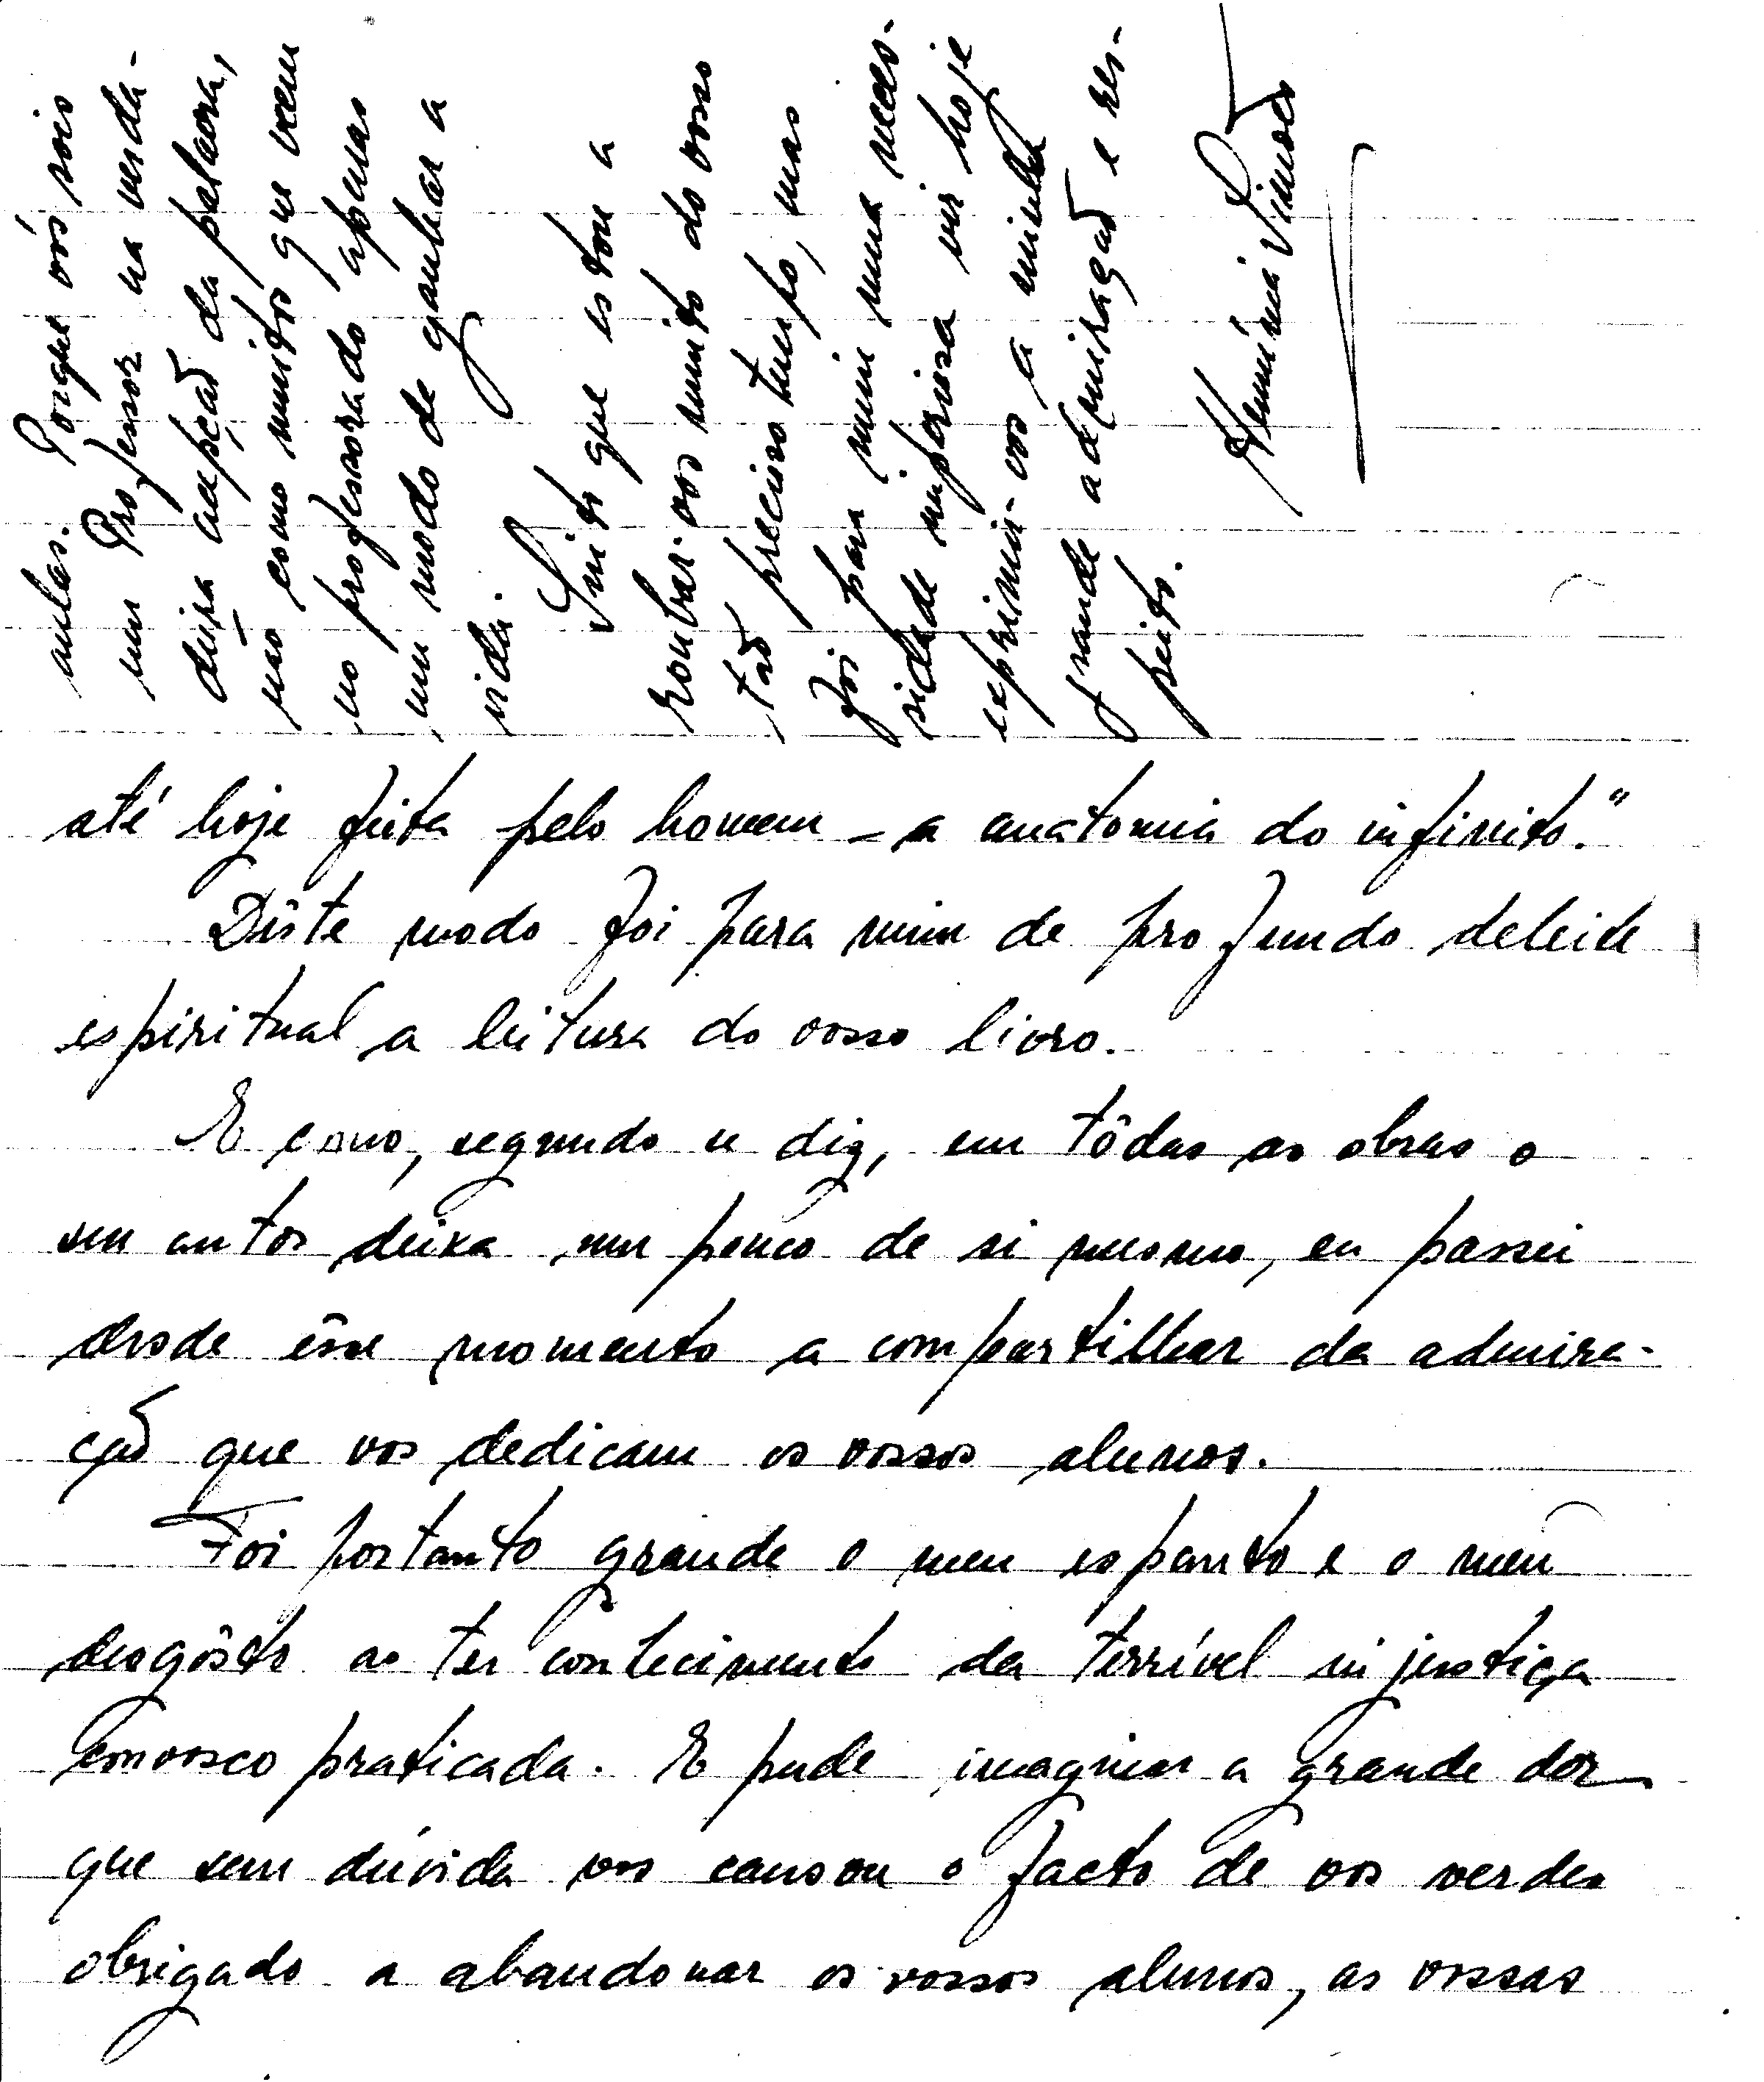 até hoje feita pelo homem – a anatomia do infinito."
Dêste modo foi para mim de profundo deleite
espiritual a leitura do vosso livro.
E como, segundo se diz, em tôdas as obras o
seu autor deixa um pouco de si mesmo, eu passei
desde êsse momento a compartilhar da admira-
ção que vos dedicam os vossos alunos.
Foi portanto grande o meu espanto e o meu
desgôsto ao ter conhecimento da terrível injustiça
convosco praticada. E pude imaginar a grande dor
que sem dúvida vos causou o facto de vos verdes
obrigado a abandonar os vossos alunos, as vossas
aulas. Porque vós sois
um Professor na verda-
deira acepção da palavra,
não como muitos que veem
no professorado apenas
um modo de ganhar a
vida.
Sinto que estou a
roubar-vos muito do vosso
tão precioso tempo, mas
foi para mim uma neces-
sidade imperiosa vir hoje
exprimir-vos a minha
grande admiração e res-
peito.
Hermínia Simões